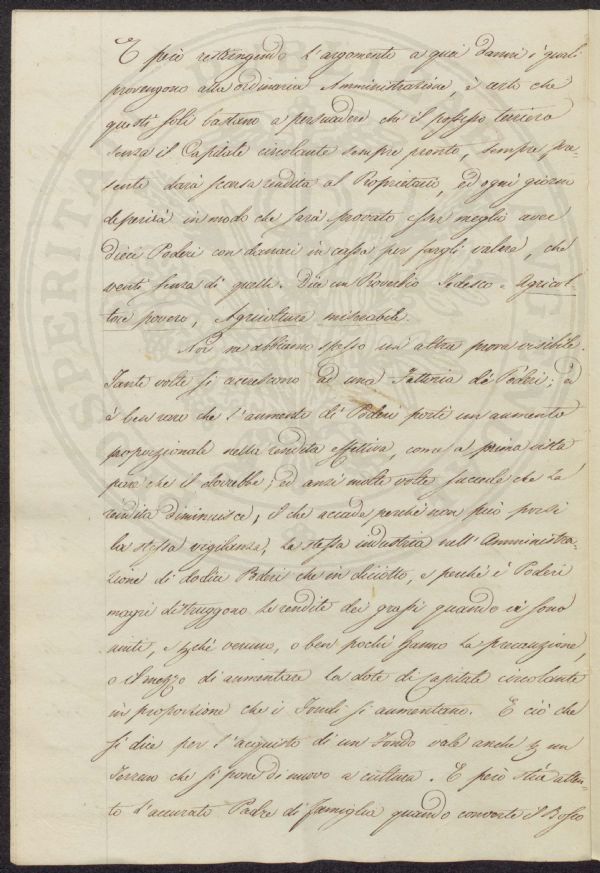 E però restringendo l'argomento a quei danni i quali
provengono alla ordinaria Amministrazione, è certo che
questi soli bastano a persuadere che il possesso terriero
senza il Capitale circolante sempre pronto, sempre pre-
sente darà scarsa rendita al Proprietario, ed ogni giorno
deperirà in modo che sarà provato esser meglio avere
dieci Poderi con danari in cassa per fargli valere, che
venti senza di quelli. Dice un Proverbio Tedesco = Agricol-
tore povero, Agricoltura miserabile.
Noi ne abbiamo spesso un'altra prova visibile.
Tante volte si accrescano ad una Fattoria dè Poderi; ed
è ben raro che l'aumento di Poderi porti un aumento
proporzionale nella rendita effettiva, come a prima vista
pare che il dovrebbe; ed anzi molte volte succede che la
rendita diminuisce, il che accade perchè non può porsi
la stessa vigilanza, la stessa industria nell'Amministra-
zione di dodici Poderi che in diciotto, e perchè i Poderi
magri distruggono le rendite dei grassi quando vi sono
uniti, e perchè veruno, o ben pochi hanno la precauzione,
o il mezzo di aumentare la dote di Capitale circolante
in proporzione che i Fondi si aumentano. E ciò che
si dice per l'acquisto di un Fondo vale anche per un
Terreno che si pone di nuovo a cultura. E però stia atten-
to l'accurato Padre di famiglia quando converte il Bosco